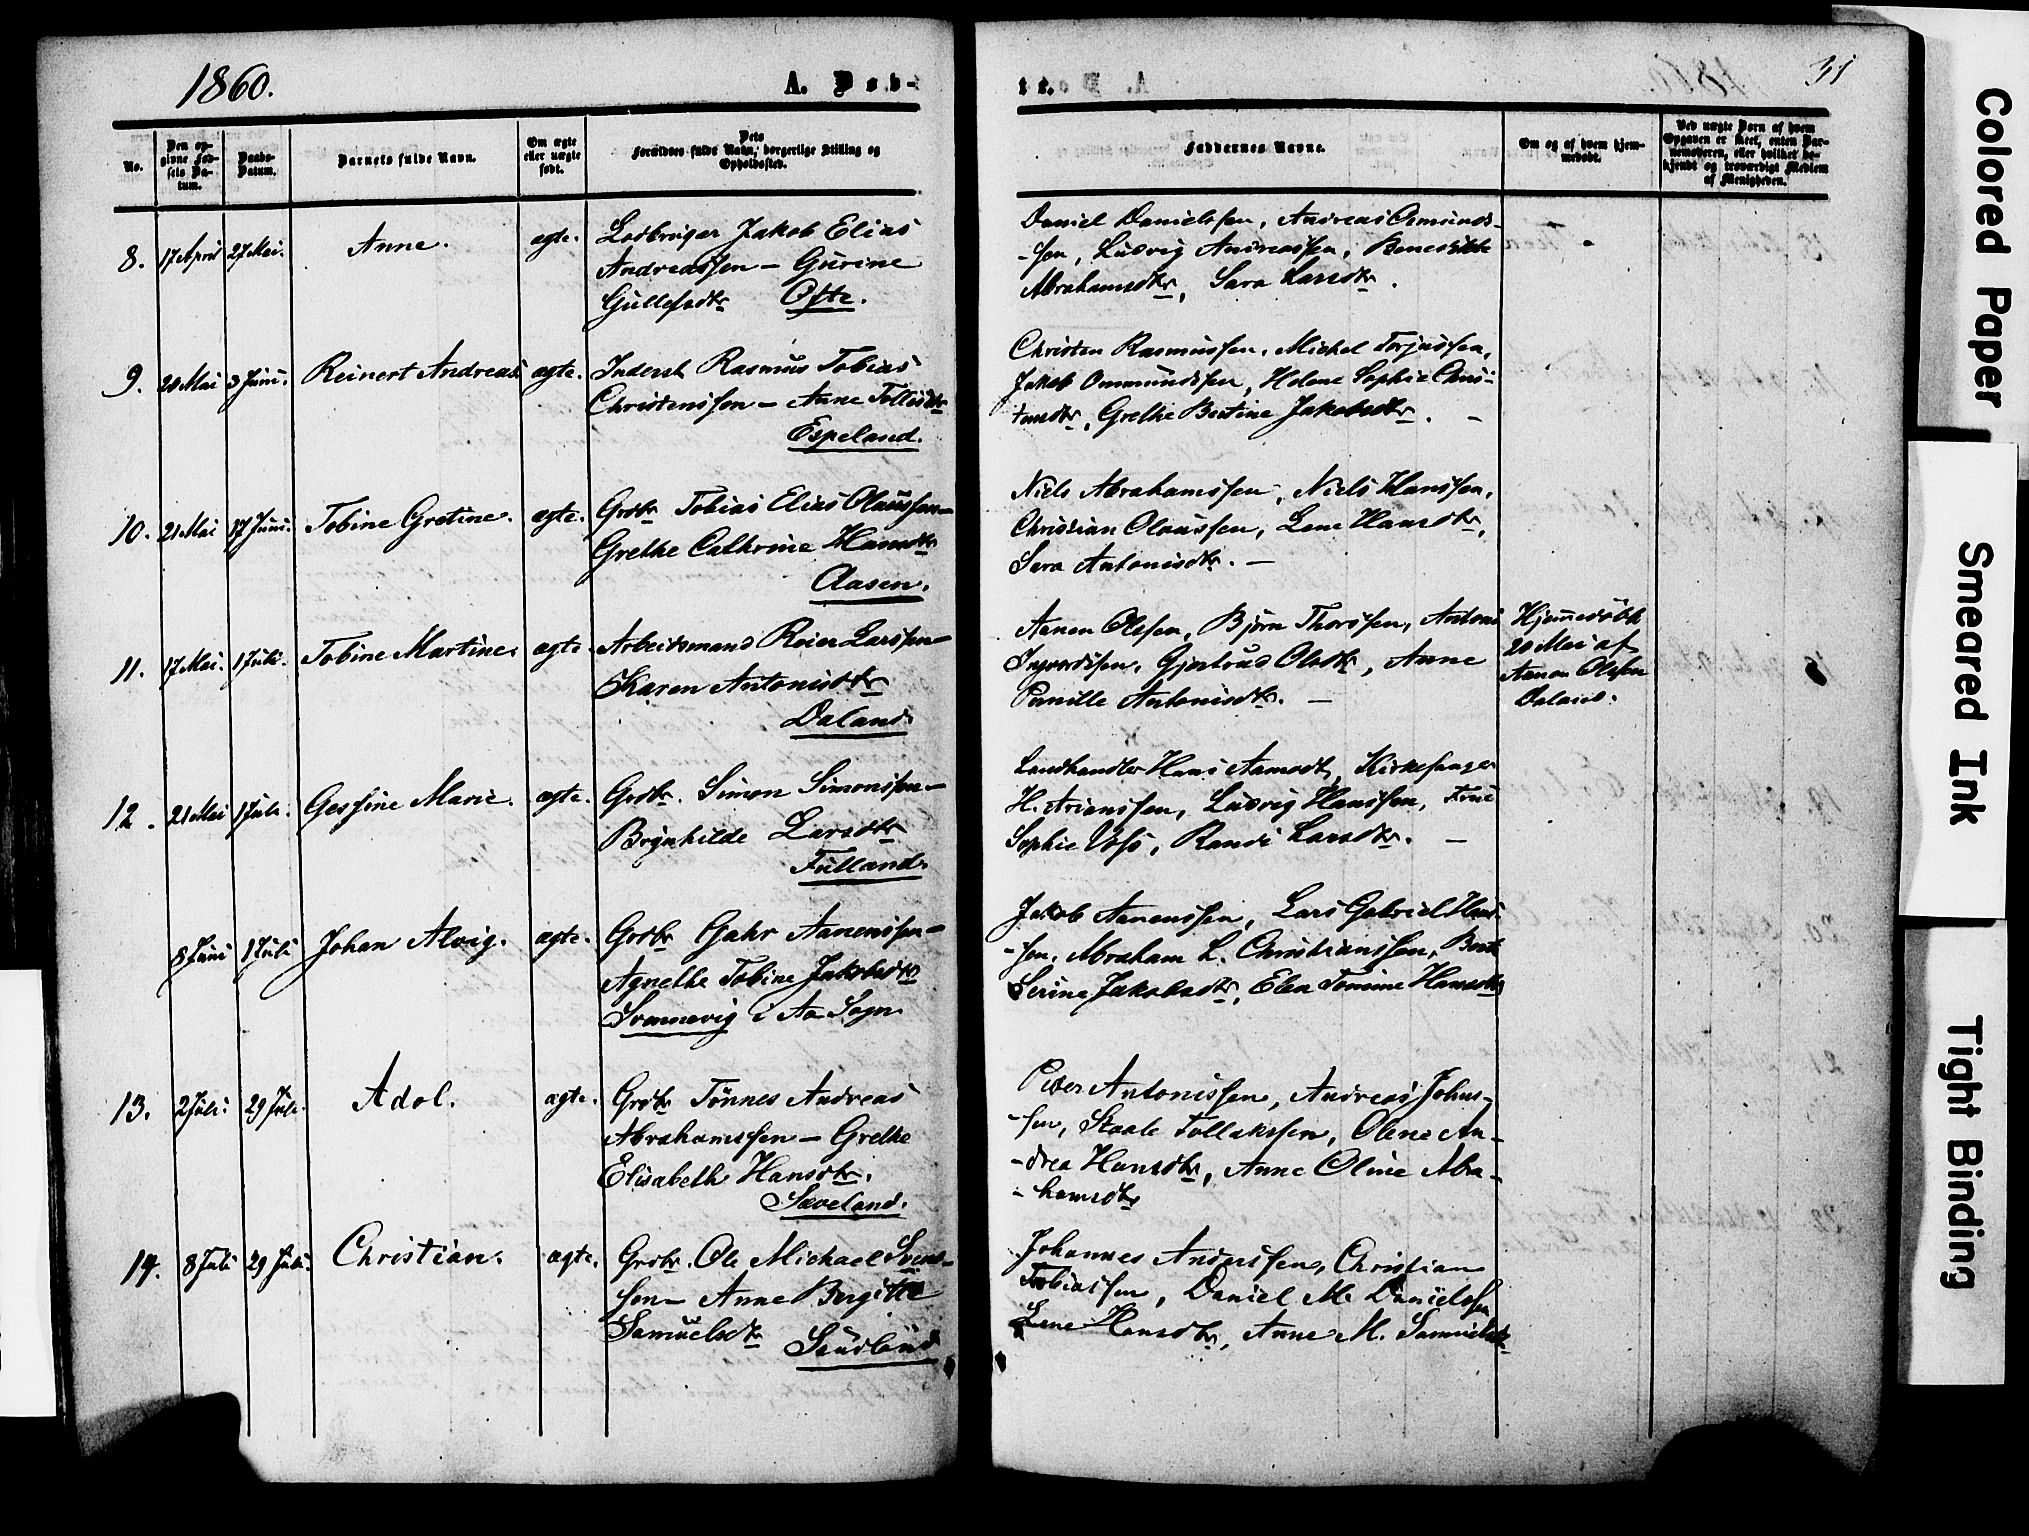 1860.
A. Døb-
te.
31
No.
Den op-
givne Fød-
sels Da-
tum.
Daabs-
Datum.
Barnets fulde Navn.
Om ægte
eller uægte
født.
Dets
Forældres fulde Navn, borgerlige Stilling og
Opholdssted.
Faddernes Navne.
Om og af hvem hjem-
medøbt.
Ved uægte Børn af hvem
Opgaven er skeet, enten Bar-
nemoderen, eller hvilket be-
kjendt og troværdigt Medlem
af Menigheden.
8. 17 April 27 Mai. Anne. ægte.
Lodbruger Jakob Elias
Andreassen – Gurine
Gullefsdtr Ofte.
Daniel Danielssen, Andreas Osmunds-
-sen, Ludvig Andreassen, Benedikte
Abrahamsdtr, Sara Larsdtr.
9. 20 Mai 3 Juni. Reinert Andreas ægte.
Inderst Rasmus Tobias
Christenssen – Anne Tollisdtr
Espeland.
Christen Rasmussen, Michel Torjussen,
Jakob Ommundssen, Helene Sophie Chris-
tensdtr, Grethe Bertine Jakobsdtr. –
10. 21 Mai 17 Juni. Tobine Gretine. ægte.
Grdbr Tobias Elias Olaussen –
Grethe Cathrine Hansdtr
Aasen.
Niels Abrahamssen, Niels Hanssen,
Christian Olaussen, Lene Hansdtr,
Sara Antonisdtr. –
11. 17 Mai. 1 Juli. Tobine Martine. ægte.
Arbeidsmand Reier Larssen –
Karen Antonisdtr
Daland.
Aanen Olssen, Bjørn Thorssen, Antoni
Ingvardssen, Gjertrud Olsdtr, Anne
Pernille Antonisdtr. –
Hjemmedøbt
20 Mai af
Aanen Olssen
Daland.
12. 21 Mai 1 Juli. Gessine Marie. ægte.
Grdbr. Simon Simonssen –
Brynhilde Larsdtr
Fulland.
Landhandler Hans Aamodt, Kirkesanger
H. Arianssen, Ludvig Hanssen, Frue
Sophie Voss, Randi Larsdtr. –
8 Juni 1 Juli Johan Alvig. ægte.
Grdbr Gahr Aanenssen –
Agnethe Tobine Jakobsdtr
Svennevig i Aa Sogn
Jakob Aanenssen, Lars Gabriel Hans-
-sen, Abraham L. Christianssen, Berte
Serine Jakobsdtr, Elen Tomine Hansdtr
13. 2 Juli. 29 Juli. Adol. ægte.
Grdbr Tønnes Andreas
Abrahamssen – Grethe
Elisabeth Hansdtr.
Sæveland.
Peder Antonissen, Andreas Johns-
-sen, Staale Tollakssen, Olene An-
-drea Hansdtr, Anne Oline Abra-
-hamsdtr
14. 8 Juli 29 Juli. Christian. ægte.
Grdbr. Ole Michael Svens-
sen – Anne Bergitte
Samuelsdtr
Sundland
Johannes Anderssen, Christian
Tobiassen, Daniel M. Danielssen
Lene Hansdtr, Anne M. Samuelsdtr
Colored Paper
Smeared Ink
Tight Binding